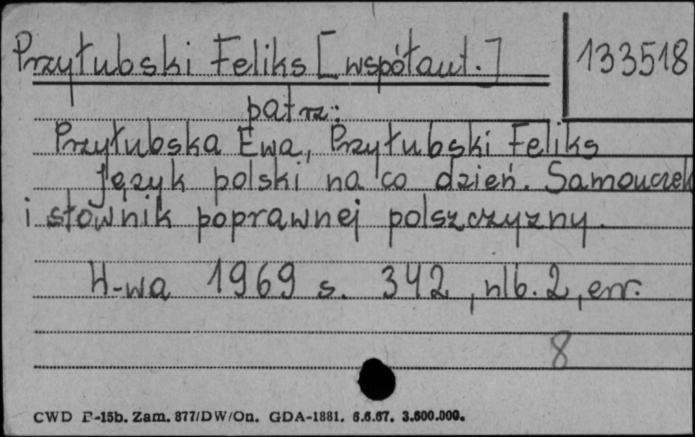 Przyłubski Feliks [współaut.]
133518
patrz:
Przyłubska Ewa, Przyłubski Feliks
Język polski na co dzień. Samouczek
i słownik poprawnej polszczyzny.
W-wa 1969 s. 342, nlb. 2, err.
8
CWD P-15b. Zam. 877/DW/On. GDA-1881. 6.6.67. 3.600.000.